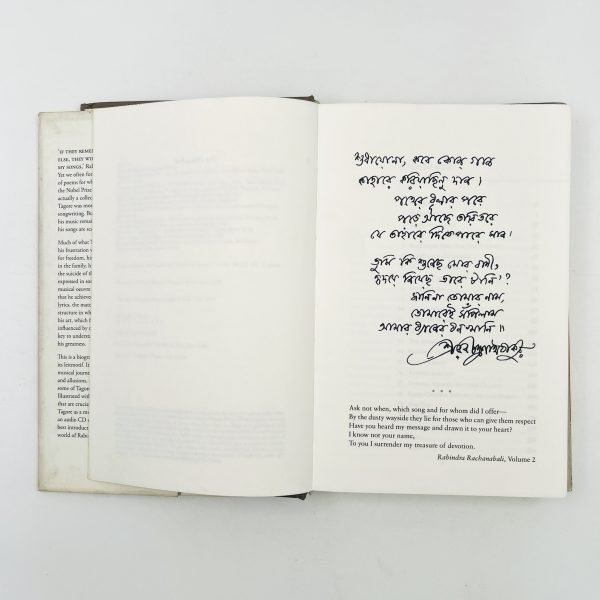 'IF THEY REME
ELSE, THEY WI
MY SONGS,' Rab
Yet we often for
of poems for wh
the Nobel Prize
actually a collec
Tagore was mos
songwriting. Bu
his music remai
his songs are sc
Much of what T
his frustration w
for freedom, his
in the family, h
the suicide of th
expressed in so
musical oeuvre
that he achieve
lyrics, the mate
structure in wh
his art, which f
influenced by
key to understan
his greatness.
This is a biogra
its leitmotif. It
musical journe
and allusions.
some of Tagore
Illustrated with
that are crucia
Tagore as a m
an audio CD o
best introduct
world of Rabi
শুধায়োনা, কবে কোন গান
কাহারে করিয়াছিনু দান ।
পথের ধুলার পরে
পড়ে আছে তারি তরে
যে তাহারে দিতে পারে মান ।
তুমি কি শুনেছ মোর বাণী,
হৃদয়ে নিয়েছ তারে টানি' ?
জানিনা তোমার নাম,
তোমারেই সঁপিলাম
আমার ধ্যানের ধন খানি ॥
শ্রীরবীন্দ্রনাথ ঠাকুর
* * *
Ask not when, which song and for whom did I offer—
By the dusty wayside they lie for those who can give them respect
Have you heard my message and drawn it to your heart?
I know not your name,
To you I surrender my treasure of devotion.
Rabindra Rachanabali, Volume 2